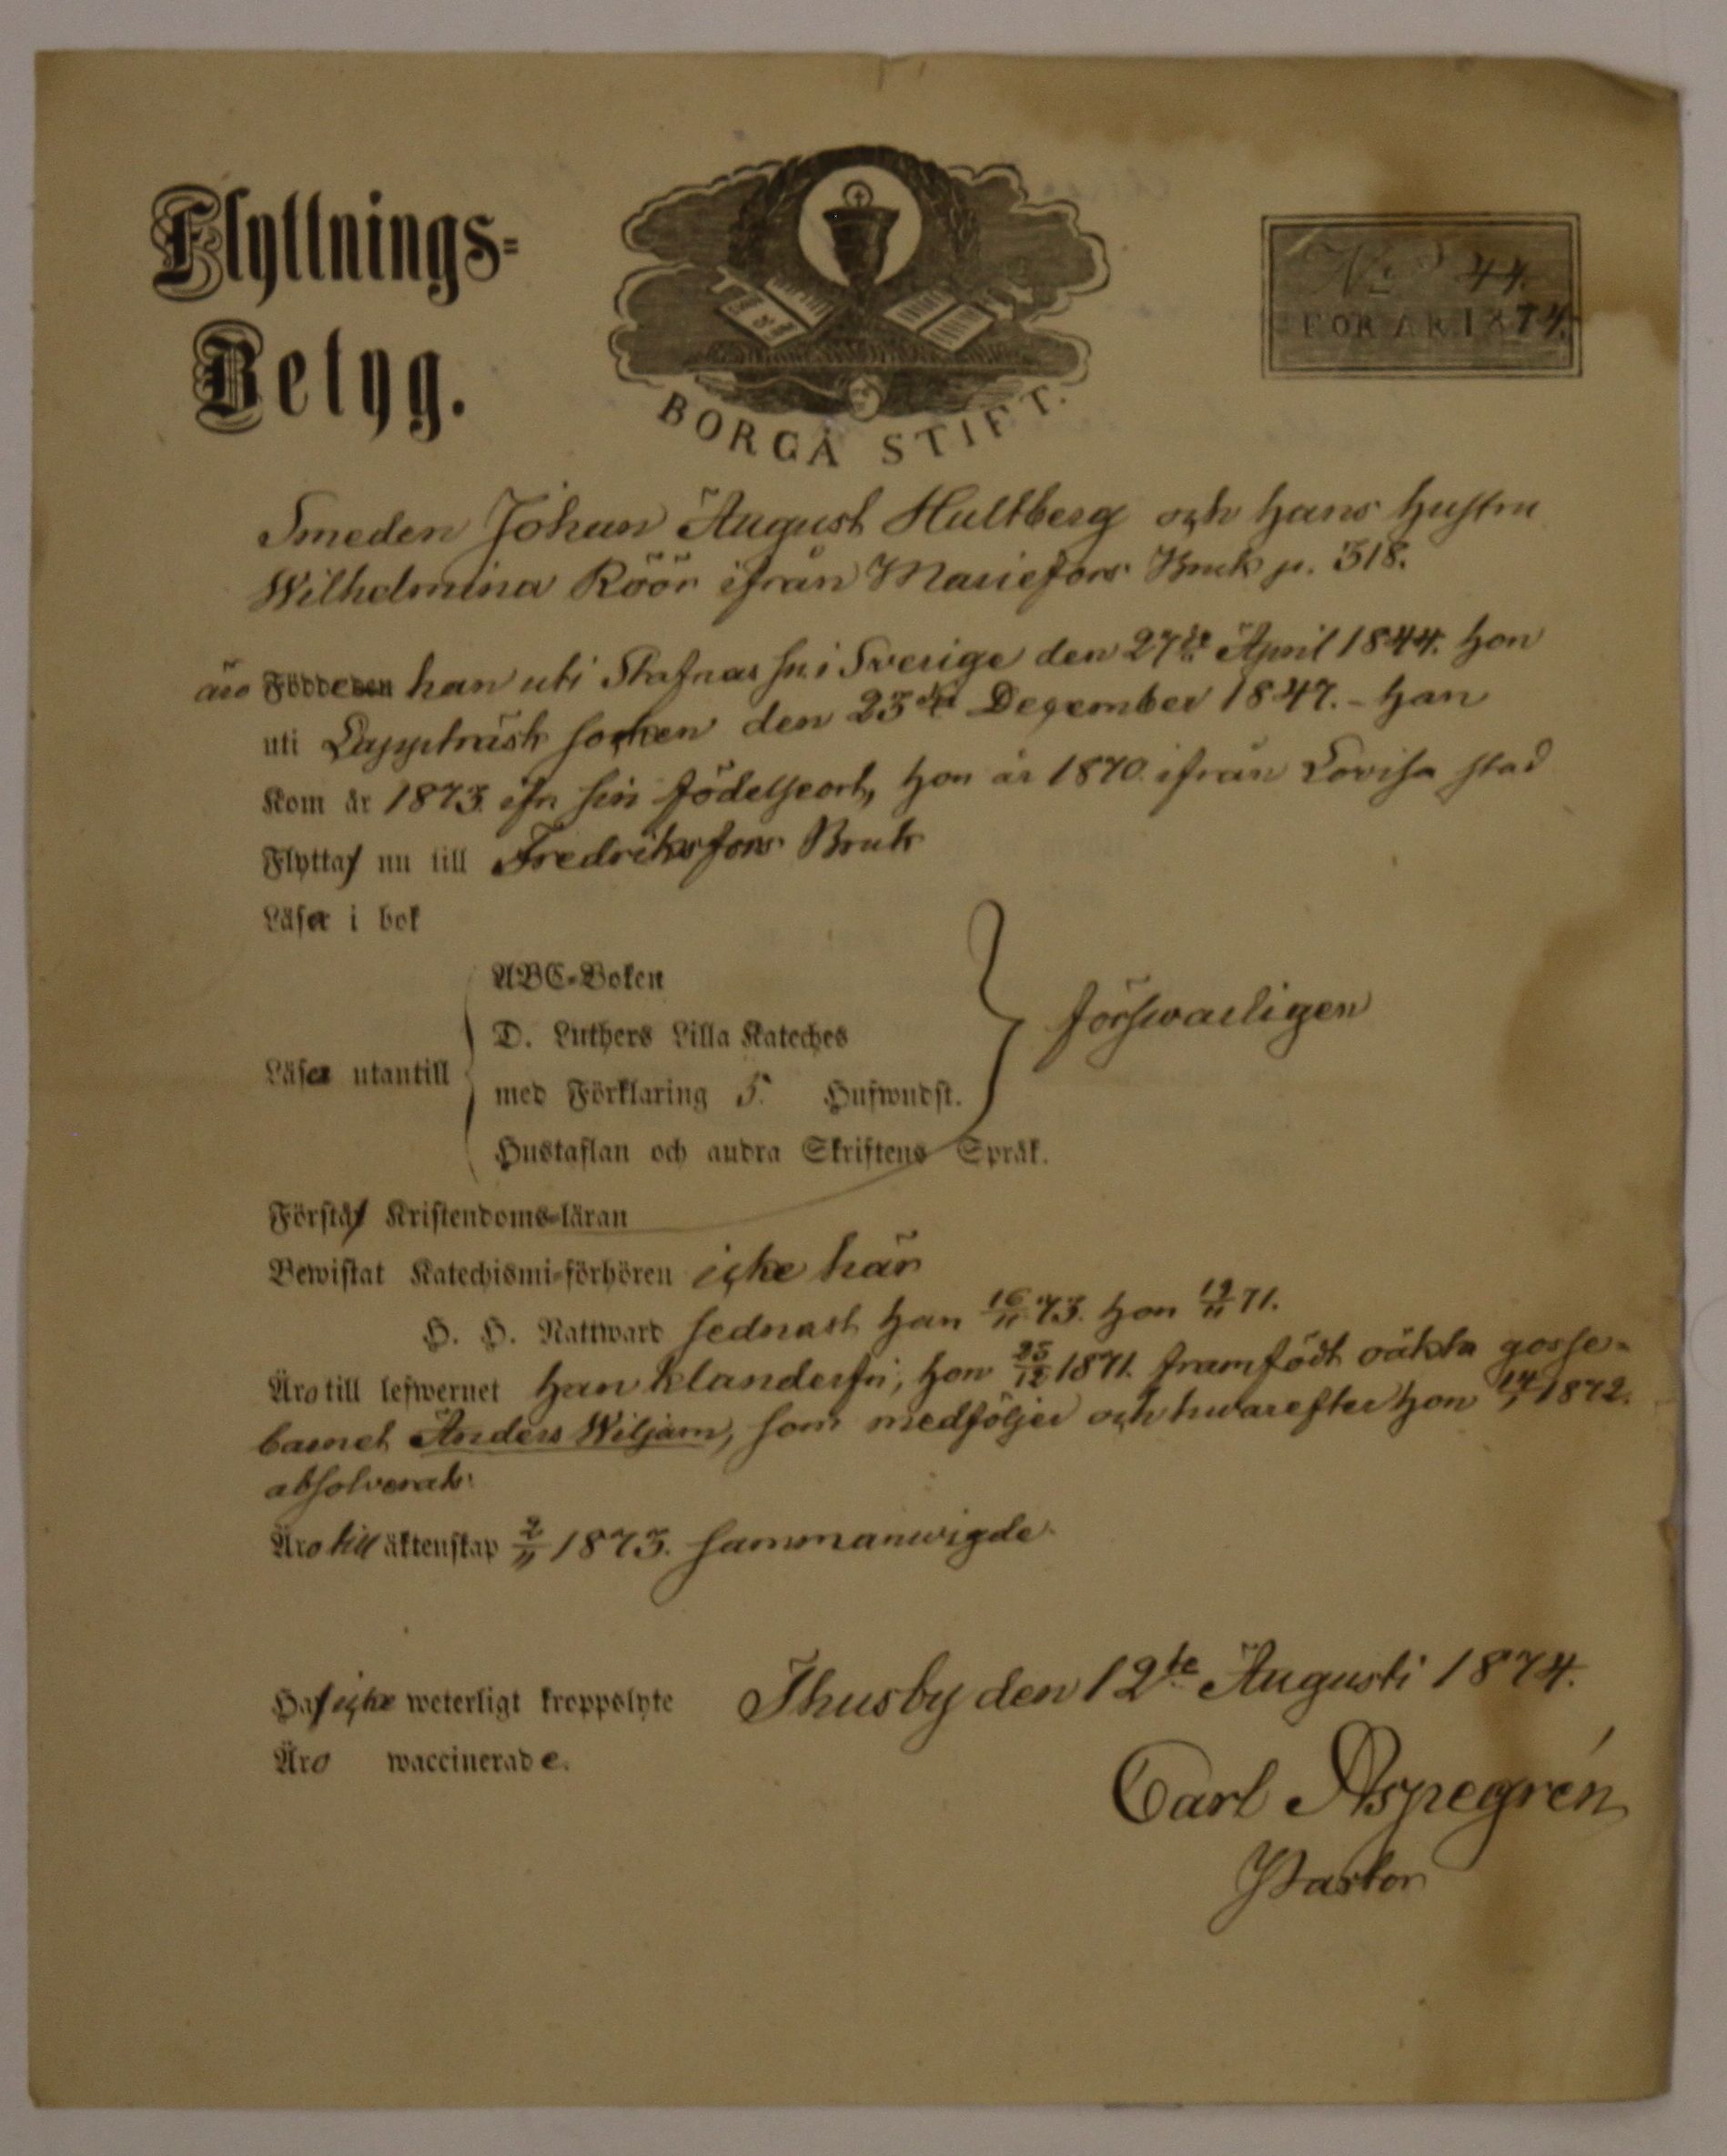 Flyttnings-
Betyg.
BORGÅ STIFT.
No 44.
FÖR ÅR 1874.
Smeden Johan August Hultberg och hans hustru
Wilhelmina Röör ifrån Mariefors Bruk p. 318.
äro Födde han uti Stafnas sn i Sverige den 27de April 1844. hon
uti Lappträsk socken den 23de December 1847. - Han
Kom år 1873. ifr. sin födelseort, hon år 1870. ifrån Lovisa stad
Flytta nu till Fredriksfors Bruk
Läsa i bok
ABC-Boken
D. Luthers Lilla Kateches
Läsa utantill
med Förklaring 5. Hufwudst.
Hustaflan och andra Skriftens Språk.
försvarligen
Förstå Kristendoms-läran
Bewistat Katechismi-förhören icke här
H. H. Nattward sednast han 16/11 73. hon 19/11 71.
Äro till lefwernet han klanderfri, hon 25/12 1871. framfödt oäkta gosse-
barnet Anders Wiljam, som medföljer och hwarefter hon 14/1 1872.
absolverats.
Äro till äktenskap 2/11 1873. sammanwigde.
Haf icke weterligt kroppslyte
Thusby den 12te Augusti 1874.
Äro waccinerade.
Carl Aspegrén
Pastor